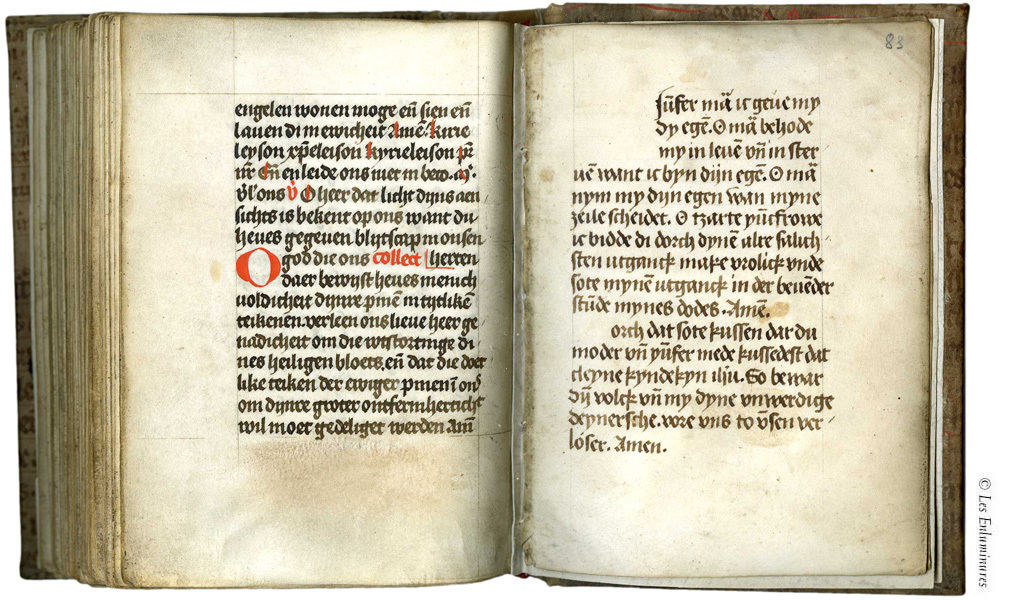 engelen wonen moge en̄ sien en̄
lauen di in ewicheit Amē. kirie
leyson xp̄eleison kyrieleison pr̄
nr̄ En̄ en leide ons niet in beco. mʳ.
v̾l ons v̾ O heer dat licht dijns aen
sichts is bekent op ons want du
heues gegeuen blijtscap in onsen
O god die ons collect herten
daer bewijst heues menich
uoldicheit dijnre pinē in tijtlikē
teikenen. verleen ons lieue heer ge
nadicheit om die wtstortinge di
nes heiligen bloets, en̄ dat die doer
like teiken der ewiger pinen ī
om dijnre groter ontfermherticheit
wil moet gedeliget werden Am̄
83
Jūfer mā ic geue my
dy egē. O mā behode
my in leuē vn̄ in ster
uē want ic byn dijn egē. O mā
nym my dijn egen wan myne
zeile scheidet. O tzarte yūcfrowe
ic bidde di dorch dynē alre salich
sten utganck make vrolick vnde
sote mynē utganck in der beuēder
stūde mynes dodes. Amē.
orch dat sote kussen dat du
moder vn̄ yūfer mede kussedest dat
cleyne kyndekyn ihū. So bewar
dij volck vn̄ my dyne vnwerdige
deynersche. vore vns to vnsen ver
loser. Amen.
© Les Enluminures